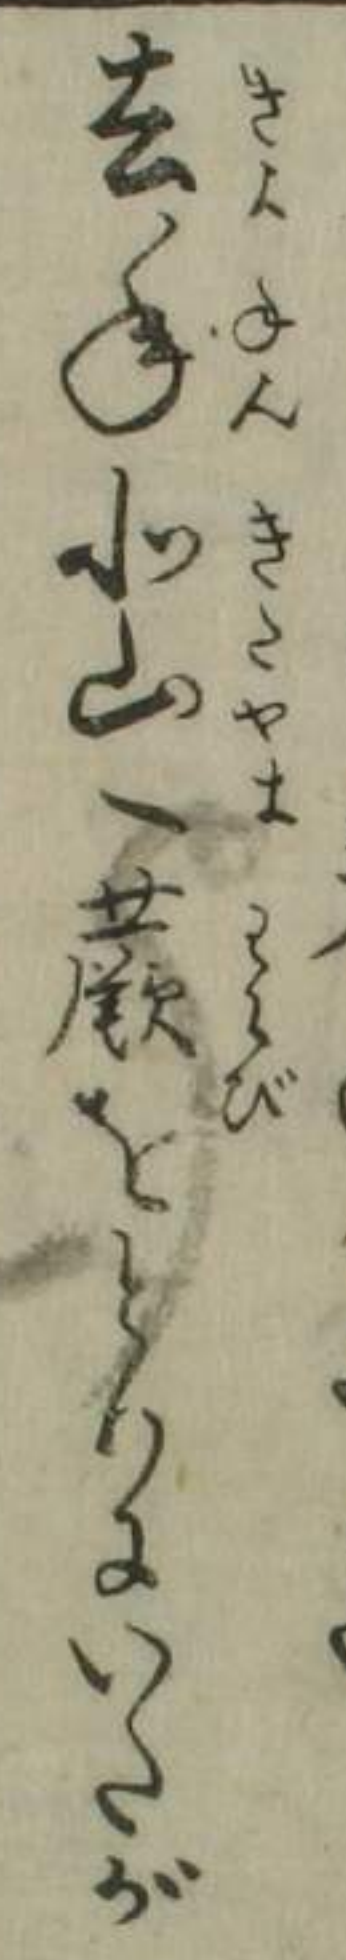 去年北山へ蕨をとりにいたが
きよねんきたやまわらび